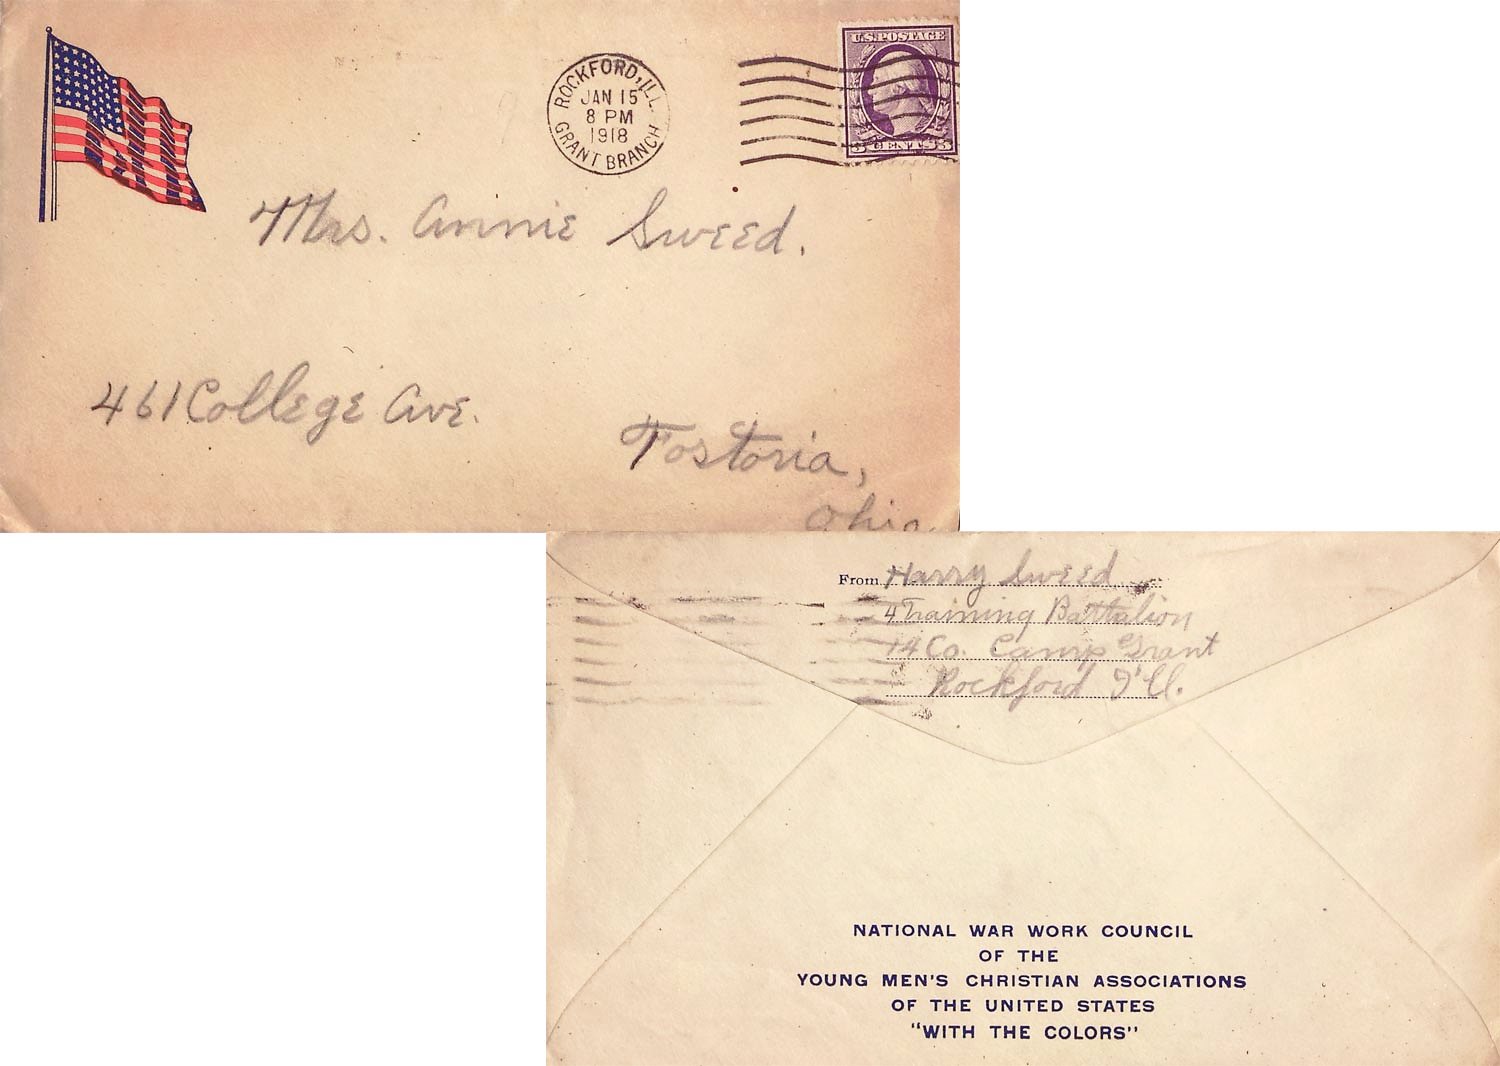 ROCKFORD, ILL.
JAN 15
8 PM
1918
GRANT BRANCH
U.S. POSTAGE
3 CENTS 3
Mrs. Annie Sweed.
461 College Ave.
Fostoria,
Ohio
From Harry Sweed
4 Training Battalion
14 Co. Camp Grant
Rockford I'll.
NATIONAL WAR WORK COUNCIL
OF THE
YOUNG MEN'S CHRISTIAN ASSOCIATIONS
OF THE UNITED STATES
"WITH THE COLORS"